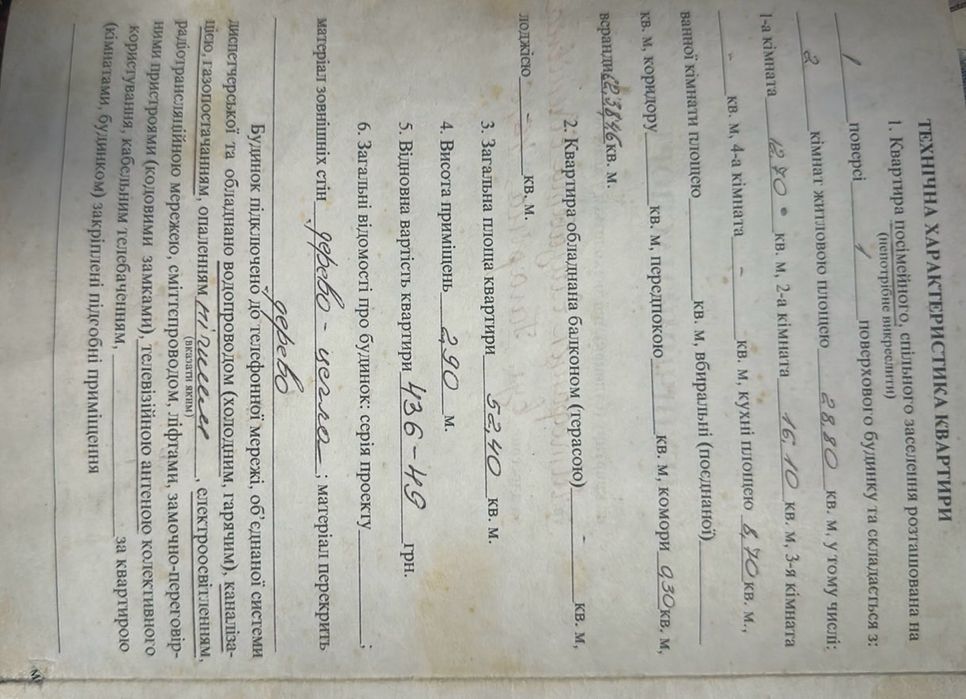 ТЕХНІЧНА ХАРАКТЕРИСТИКА КВАРТИРИ
1. Квартира посімейного, спільного заселення розташована на
(непотрібне викреслити)
1 поверсі 1 поверхового будинку та складається з:
2 кімнат житловою площею 28.80 кв. м, у тому числі:
1-а кімната 12.70 кв. м, 2-а кімната 16.10 кв. м, 3-я кімната
- кв. м, 4-а кімната - кв. м, кухні площею 8,70 кв. м.,
ванної кімнати площею кв. м, вбиральні (поєднаної)
кв. м, коридору кв. м, передпокою кв. м, комори 0,30 кв. м,
веранди кв. м.
2. Квартира обладнана балконом (терасою) - кв. м,
лоджією - кв. м.
3. Загальна площа квартири 52,40 кв. м.
4. Висота приміщень 2,90 м.
5. Відновна вартість квартири 436-49 грн.
6. Загальні відомості про будинок: серія проекту ;
матеріал зовнішніх стін дерево - цегла ; матеріал перекрить
дерево
Будинок підключено до телефонної мережі, об'єднаної системи
диспетчерської та обладнано водопроводом (холодним, гарячим), каналіза-
цією, газопостачанням, опаленням , електроосвітленням,
(вказати яким)
радіотрансляційною мережею, сміттєпроводом, ліфтами, замочно-переговір-
ними пристроями (кодовими замками), телевізійною антеною колективного
користування, кабельним телебаченням, за квартирою
(кімнатами, будинком) закріплені підсобні приміщення